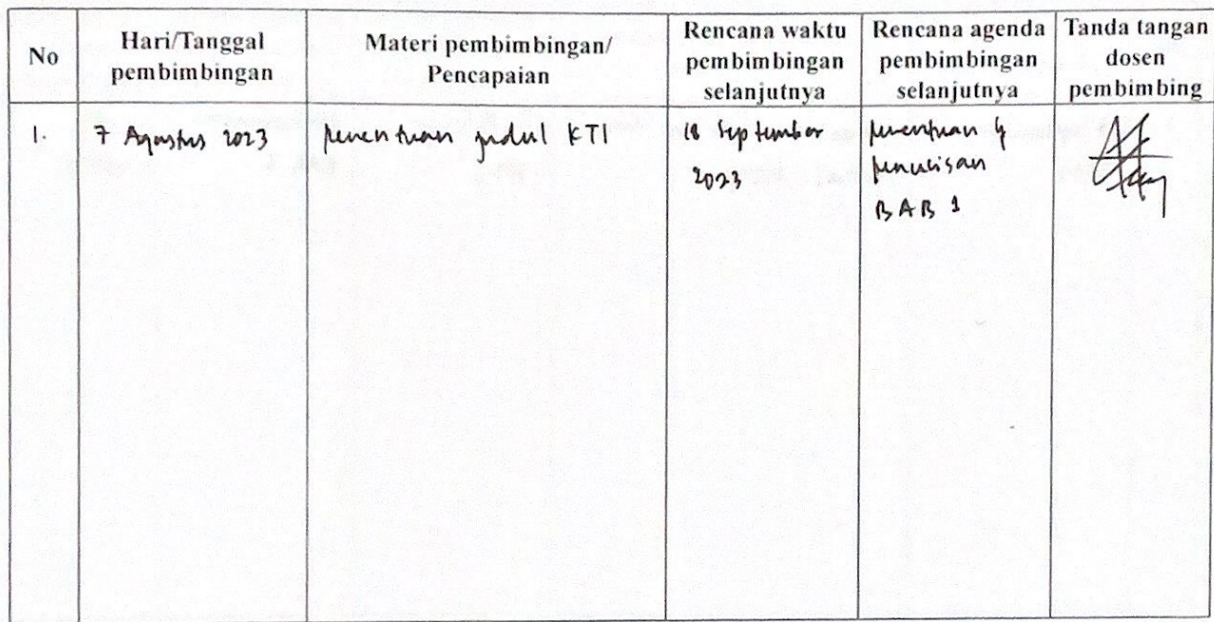 No
Hari/Tanggal
pembimbingan
Materi pembimbingan/
Pencapaian
Rencana waktu
pembimbingan
selanjutnya
Rencana agenda
pembimbingan
selanjutnya
Tanda tangan
dosen
pembimbing
1.
7 Agustus 2023
penentuan judul KTI
18 September
2023
penentuan &
penulisan
BAB 1